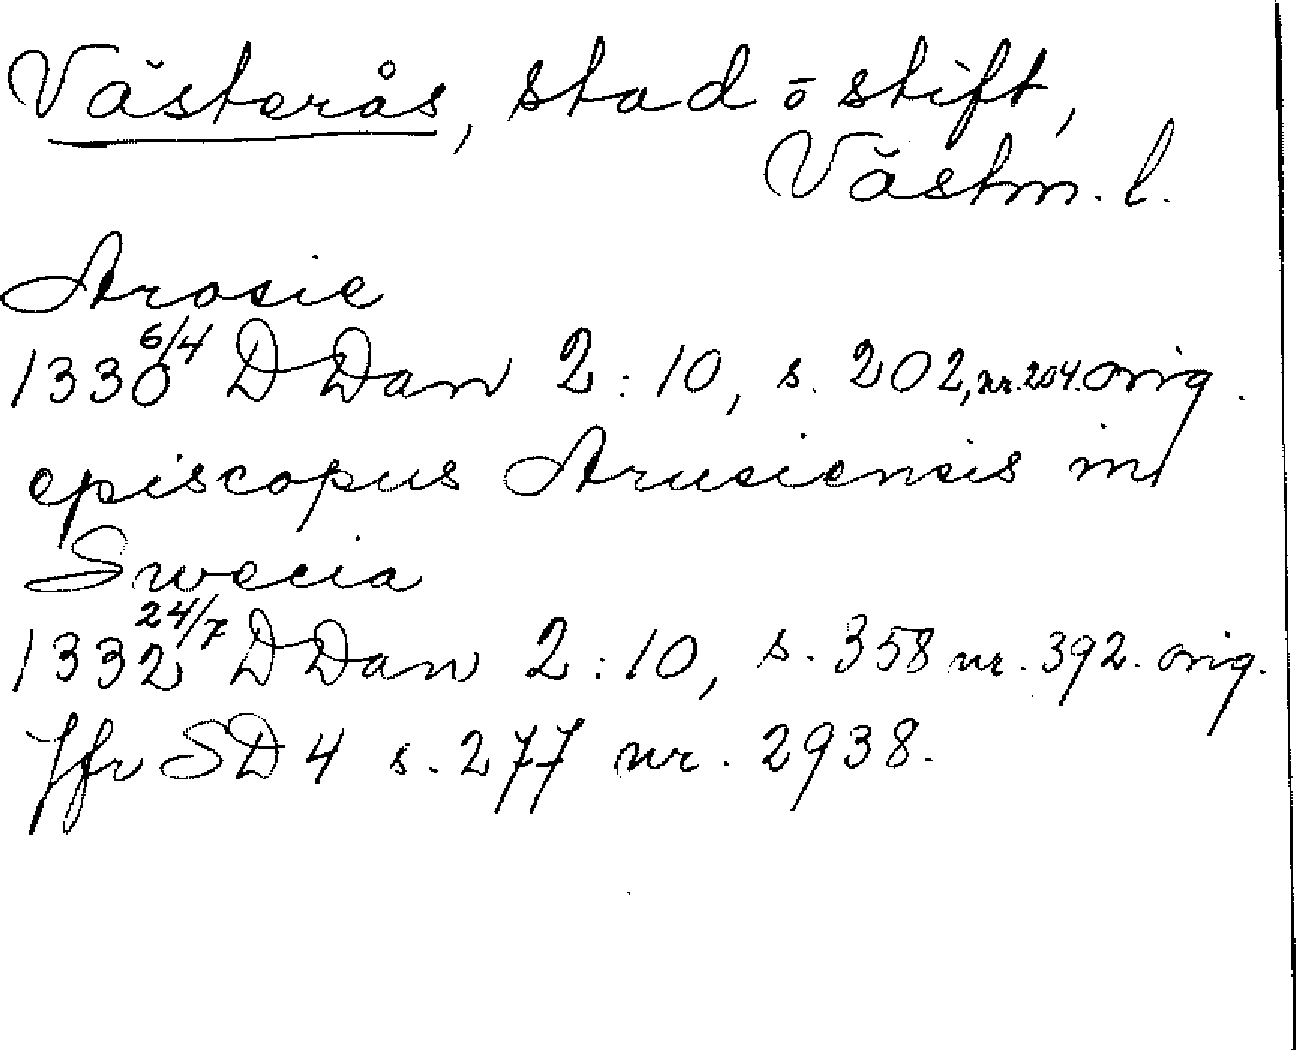 Västerås, stad o stift,
Västm. l.
Arosie
1330 6/4 DDan 2:10, s. 202, nr. 204. orig.
episcopus Arusiensis in
Swecia
1332 24/7 DDan 2:10, s. 358 nr. 392. orig.
Jfr SD 4 s. 277 nr. 2938.